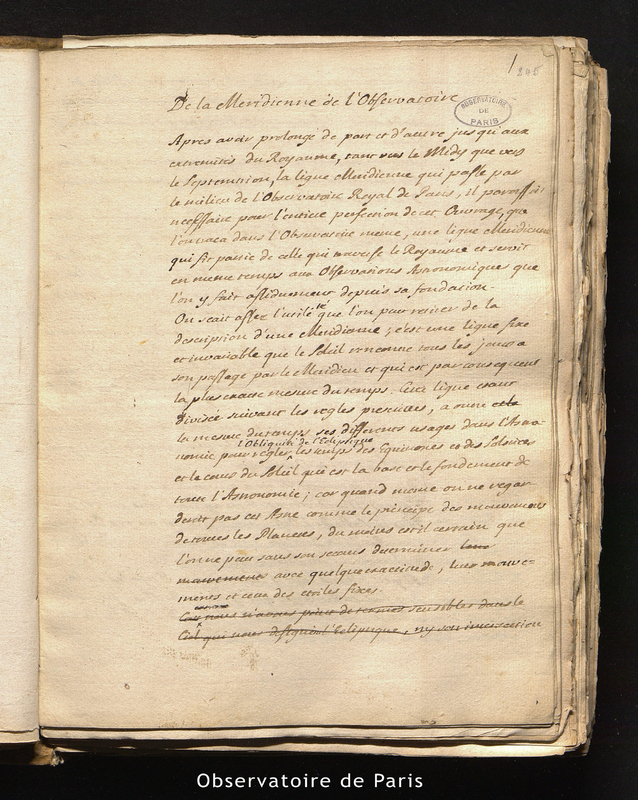 1
245
De la Meridienne de l'Observatoire
OBSERVATOIRE
DE
PARIS
Apres avoir prolongé de part et d'autre jusqu'aux
extremités du Royaume, tant vers le Midy que vers
le Septentrion, la ligne Meridienne qui passe par
le milieu de l'Observatoire Royal de Paris, il paroissoit
necessaire pour l'entiere perfection de cet Ouvrage, que
l'on traca dans l'Observatoire meme, une ligne Meridienne
qui fit partie de celle qui traverse le Royaume et servit
en meme temps aux Observations Astronomiques que
l'on y fait assiduement depuis sa fondation.
On scait assez l'utilité que l'on peut retirer de la
description d'une Meridienne; c'est une ligne fixe
et invariable que le Soleil rencontre tous les jours a
son passage par le Meridien et qui est par consequent
la plus exacte mesure du temps. Cette ligne etant
divisée suivant les regles prescrites, a outre cela
la mesure du temps ses differents usages dans l'Astro-
l'Obliquité de l'Ecliptique
nomie pour regler les temps des Equinoxes et des Solstices
et le cours du Soleil qui est la base et le fondement de
toute l'Astronomie; car quand meme on ne regar-
deroit pas cet Astre comme le principe des mouvements
de toutes les Planetes, du moins est il certain que
l'on ne peut sans son secours determiner leurs
mouvements avec quelque exactitude, leurs mouve-
ments et ceux des etoiles fixes.
Car nous n'avons point de termes sensibles dans le
Ciel qui nous designent l'Ecliptique, ny son intersection
Observatoire de Paris